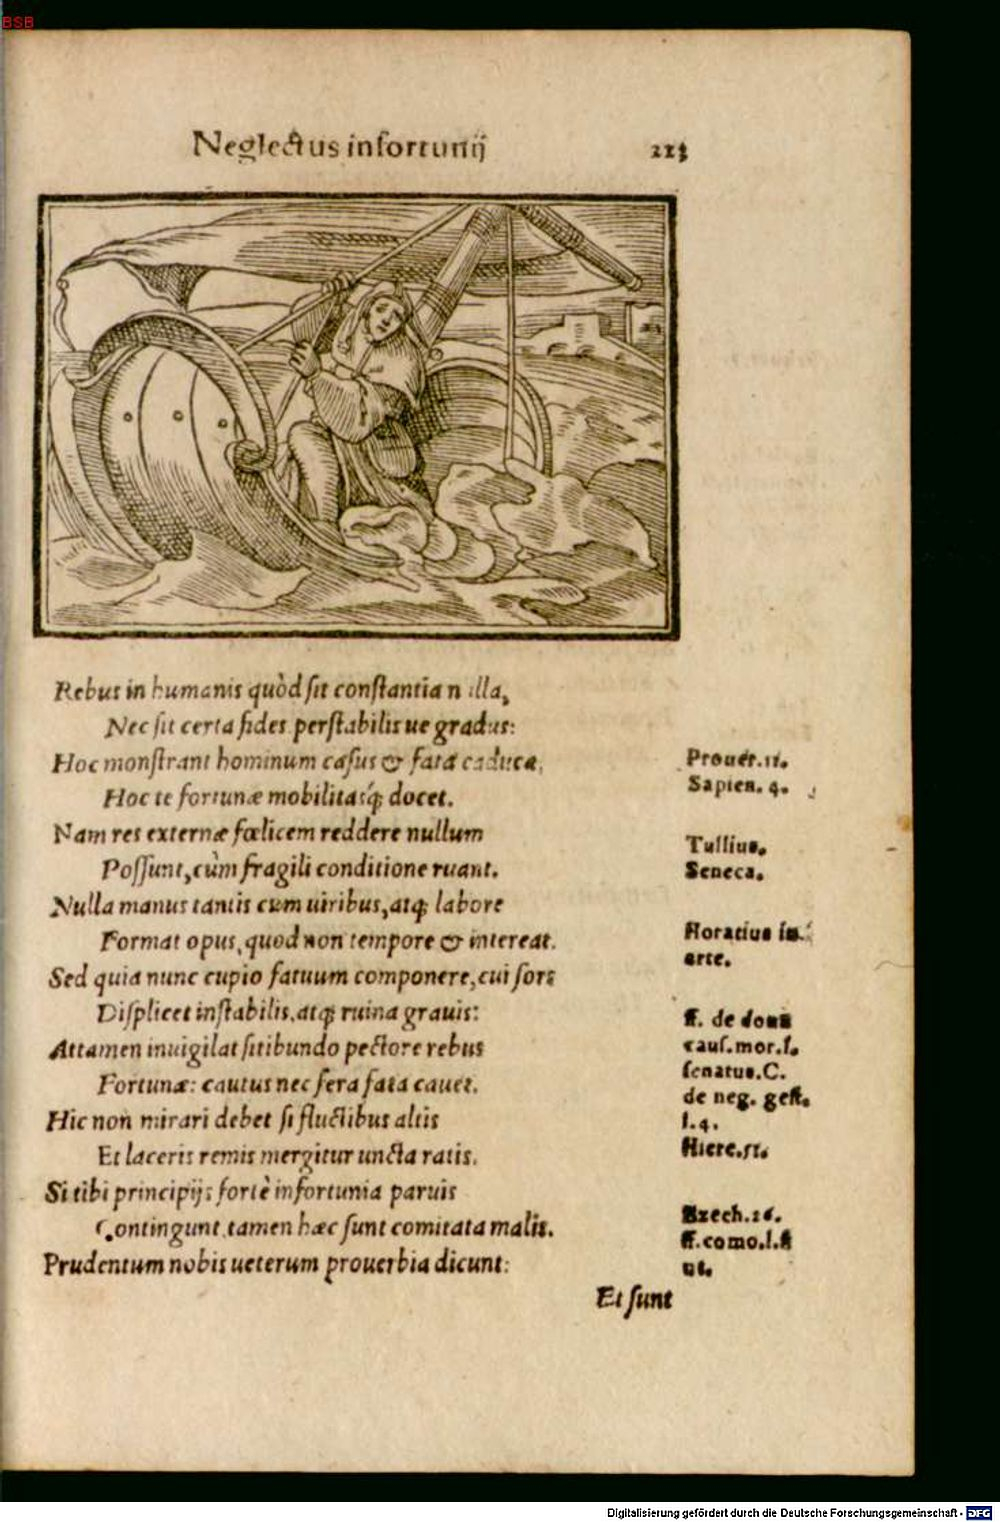 BSB
Neglectus infortunij 213
Rebus in humanis quòd ſit conſtantia nulla,
Nec ſit certa fides perſtabilisue gradus:
Hoc monſtrant hominum caſus & fata caduca,
Hoc te fortunæ mobilitasq́; docet.
Nam res externæ fœlicem reddere nullum
Poſſunt, cùm fragili conditione ruant.
Nulla manus tantis cum uiribus, atq; labore
Format opus, quod non tempore & intereat.
Sed quia nunc cupio fatuum componere, cui ſors
Diſplicet inſtabilis, atq; ruina grauis:
Attamen inuigilat ſitibundo pectore rebus
Fortunæ: cautus nec fera fata cauet.
Hic non mirari debet ſi fluctibus altis
Et laceris remis mergitur uncta ratis.
Si tibi principijs fortè infortunia paruis
Contingunt, tamen hæc ſunt comitata malis.
Prudentum nobis ueterum prouerbia dicunt:
Et ſunt
Prouer. 11.
Sapien. 4.
Tullius.
Seneca.
Horatius in
arte.
ff. de dona
cauſ. mor. l.
ſenatus. C.
de neg. geſt.
l. 4.
Hiere. 51.
Ezech. 26.
ff. como. l. ſi
ut.
Digitalisierung gefördert durch die Deutsche Forschungsgemeinschaft - DFG